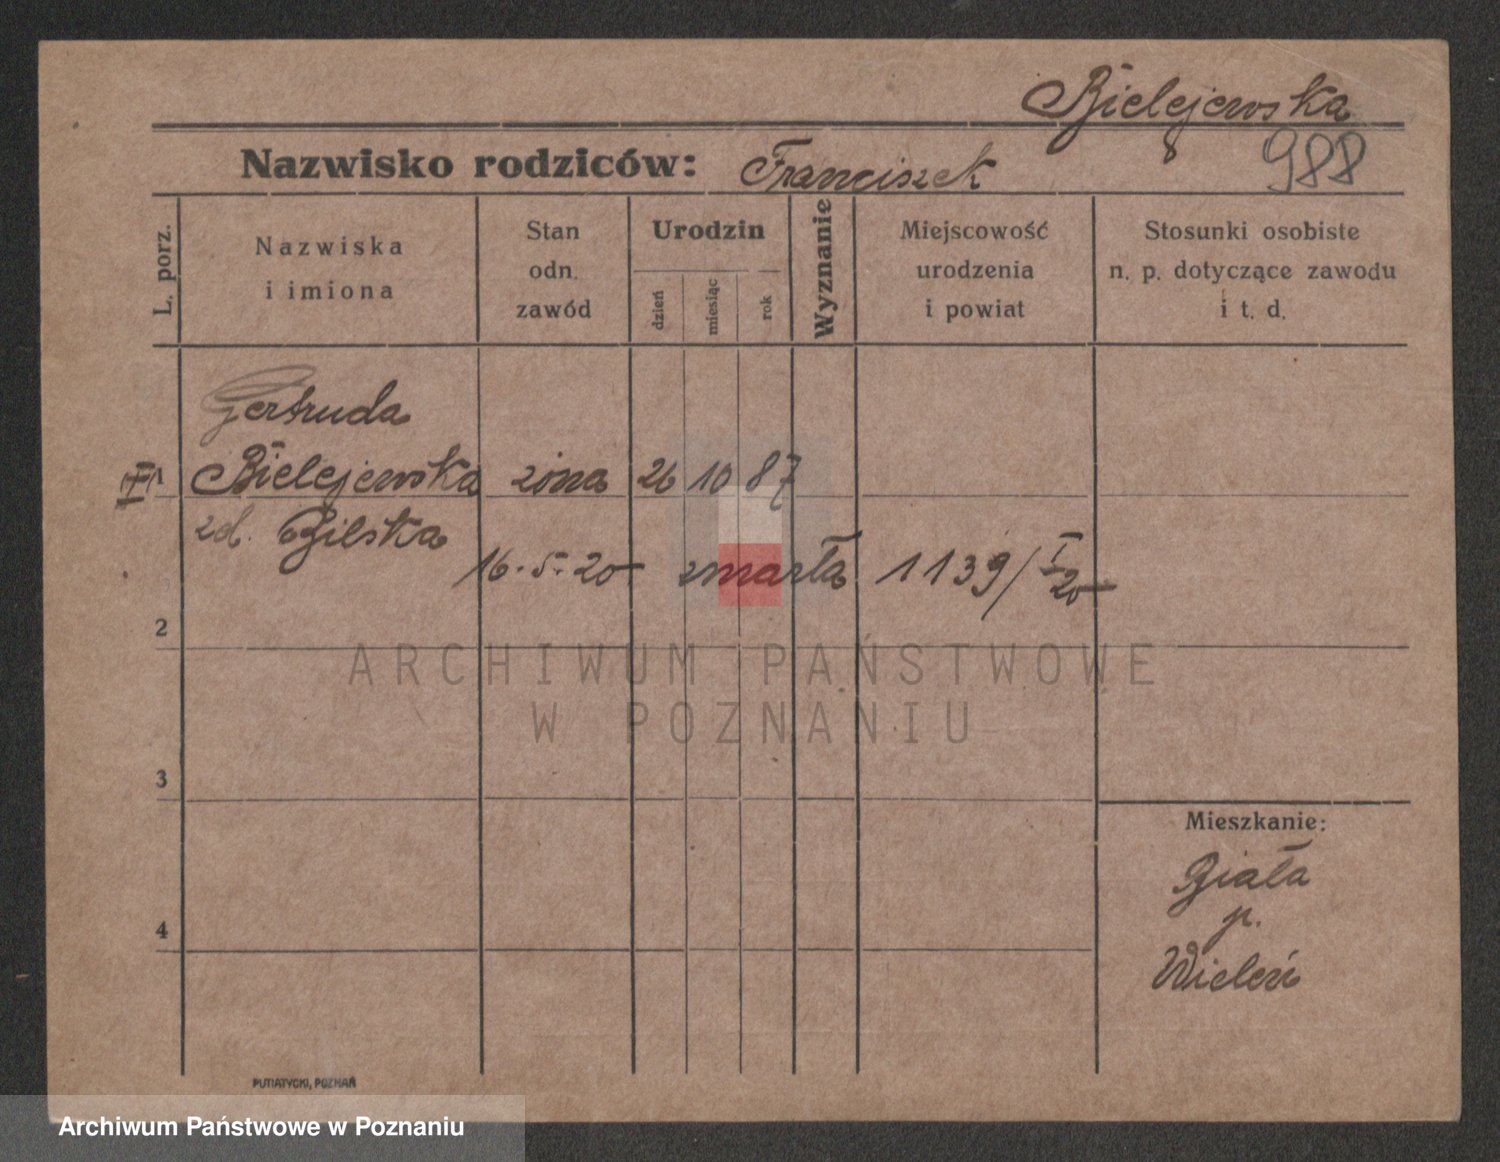 Bielejewska
Nazwisko rodziców: Franciszek 988
L. porz.
Nazwiska
i imiona
Stan
odn.
zawód
Urodzin
dzień
miesiąc
rok
Wyznanie
Miejscowość
urodzenia
i powiat
Stosunki osobiste
n. p. dotyczące zawodu
i t. d.
Gertruda
1 Bielejewska żona 26 10 87
zd. Bilska
16.5.20 zmarła 1139/I 20
2
ARCHIWUM PAŃSTWOWE
W POZNANIU
3
Mieszkanie:
Biała
p.
4
Wieleń
PUTIATYCKI, POZNAŃ
Archiwum Państwowe w Poznaniu